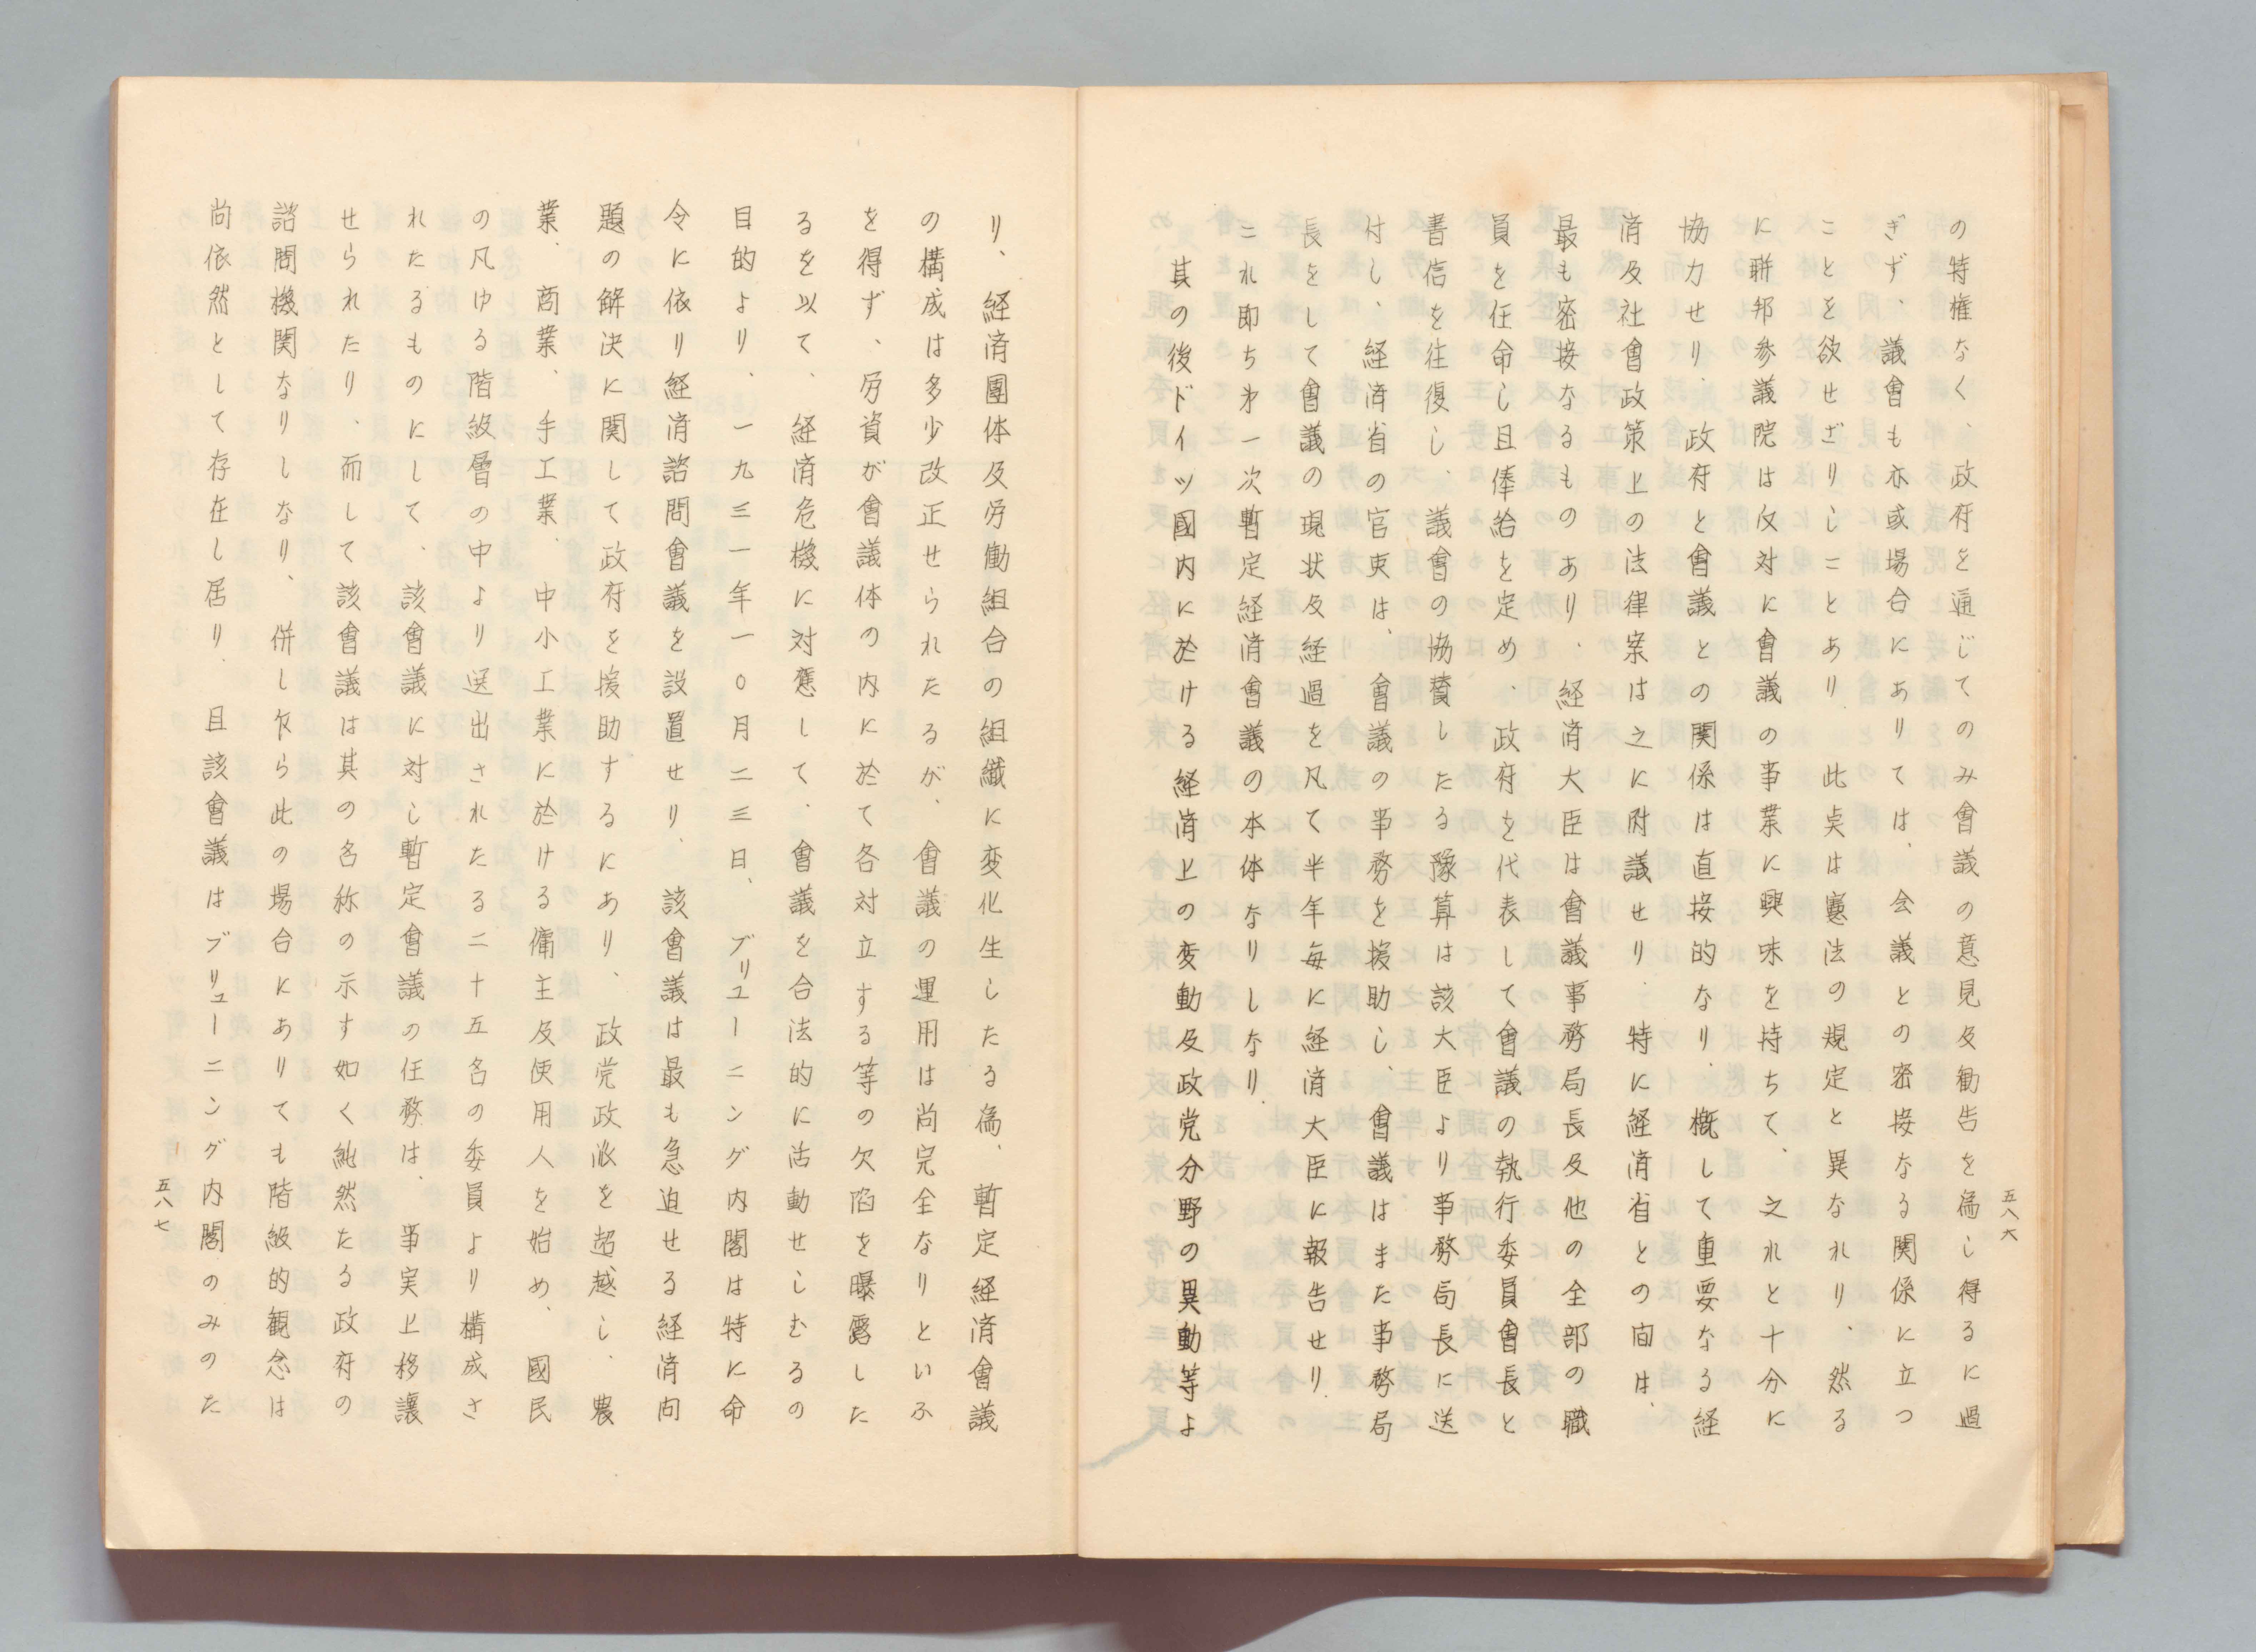 の特権なく、政府を通じてのみ會議の意見及勧告を為し得るに過
ぎず、議會も亦或場合にありては、会議との密接なる関係に立つ
ことを欲せざりしことあり、此点は憲法の規定と異なれり、然る
に聯邦参議院は反対に會議の事業に興味を持ちて、之れと十分に
協力せり、政府と會議との関係は直接的なり、概して重要なる経
済及社會政策上の法律案は之に附議せり、特に経済省との間は、
最も密接なるものあり、経済大臣は會議事務局長及他の全部の職
員を任命し且俸給を定め、政府を代表して會議の執行委員會長と
書信を往復し、議會の協賛したる豫算は該大臣より事務局長に送
付し、経済省の官吏は、會議の事務を援助し、會議はまた事務局
長をして會議の現状及経過を凡て半年毎に経済大臣に報告せり、
これ即ち才一次暫定経済會議の本体なりしなり、
其の後ドイツ國内に於ける経済上の変動及政党分野の異動等よ
五八六
り、経済團体及労働組合の組織に変化生したる為、暫定経済會議
の構成は多少改正せられたるが、會議の運用は尚完全なりといふ
を得ず、労資が會議体の内に於て各対立する等の欠陥を曝露した
るを以て、経済危機に対應して、會議を合法的に活動せしむるの
目的より、一九三一年一〇月二三日、ブリユーニング内閣は特に命
令に依り経済諮問會議を設置せり、該會議は最も急迫せる経済問
題の解決に関して政府を援助するにあり、政党政派を超越し、農
業、商業、手工業、中小工業に於ける傭主及使用人を始め、國民
の凡ゆる階級層の中より選出されたる二十五名の委員より構成さ
れたるものにして、該會議に対し暫定會議の任務は、事実上移譲
せられたり、而して該會議は其の名称の示す如く純然たる政府の
諮問機関なりしなり、併し乍ら此の場合にありても階級的観念は
尚依然として存在し居り、且該會議はブリューニング内閣のみのた
五八七